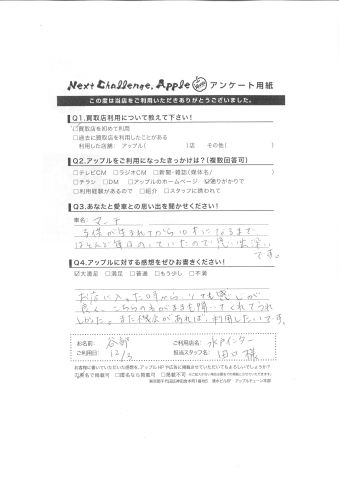 Next Challenge. Apple アンケート用紙
この度は当店をご利用いただきありがとうございました。
Q1.買取店利用について教えて下さい!
☑買取店を初めて利用
□過去に買取店を利用したことがある
利用した店舗: アップル( )店 その他( )
Q2.アップルをご利用になったきっかけは?(複数回答可)
□テレビCM □ラジオCM □新聞・雑誌(媒体名 )
□チラシ □DM □アップルのホームページ ☑通りがかりで
□利用経験があるので □紹介 □スタッフに誘われて
Q3.あなたと愛車との思い出を聞かせください!
車名: マーチ
子供が生まれてから10才になるまで
ほとんど毎日のっていたので思い出深い
です。
Q4.アップルに対する感想をぜひお書きください!
☑大満足 □満足 □普通 □もう少し □不満
お店に入った時から、とても感じが
良く、こちらのわがままも聞いてくれてうれ
しかった。また機会があれば、利用したいです。
お名前: 谷部 ご利用店名: 水戸インター
ご利用日: 12/3 担当スタッフ名: 田口 様
お客様に書いていただいた感想を、アップルHPや広告に掲載させていただいてもよろしいでしょうか?
☑実名で掲載可 □匿名なら掲載可 □掲載不可